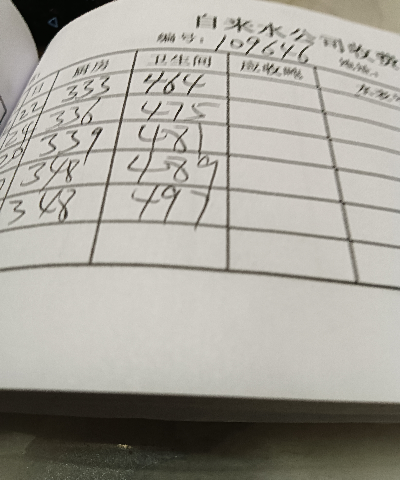 自来水公司收费
编号: 109646
厨房 卫生间 应收吨
11 333 464
22 336 475
339 481
348 489
348 497